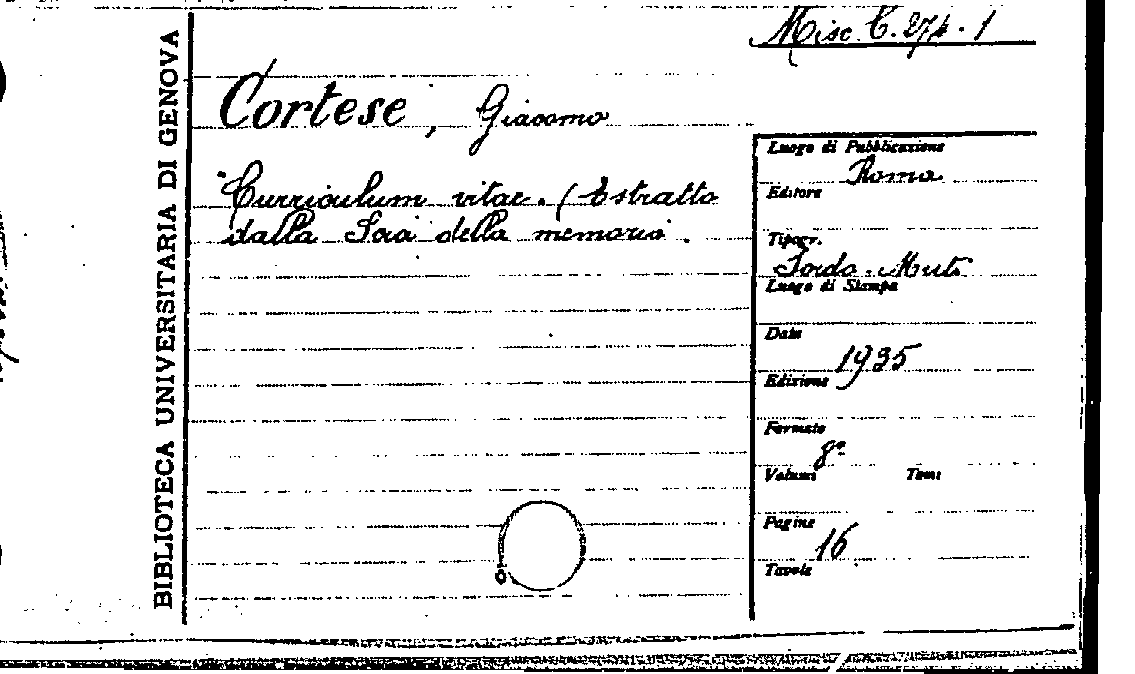 Misc. C. 274. 1
BIBLIOTECA UNIVERSITARIA DI GENOVA
Cortese, Giacomo
Curriculum vitae. (Estratto
dalla Scia della memoria.
Luogo di Pubblicazione
Roma
Editore
Tipogr.
Sordo-Muti
Luogo di Stampa
Data
1935
Edizione
Formato
8º
Volumi Tomi
Pagine
16
Tavole